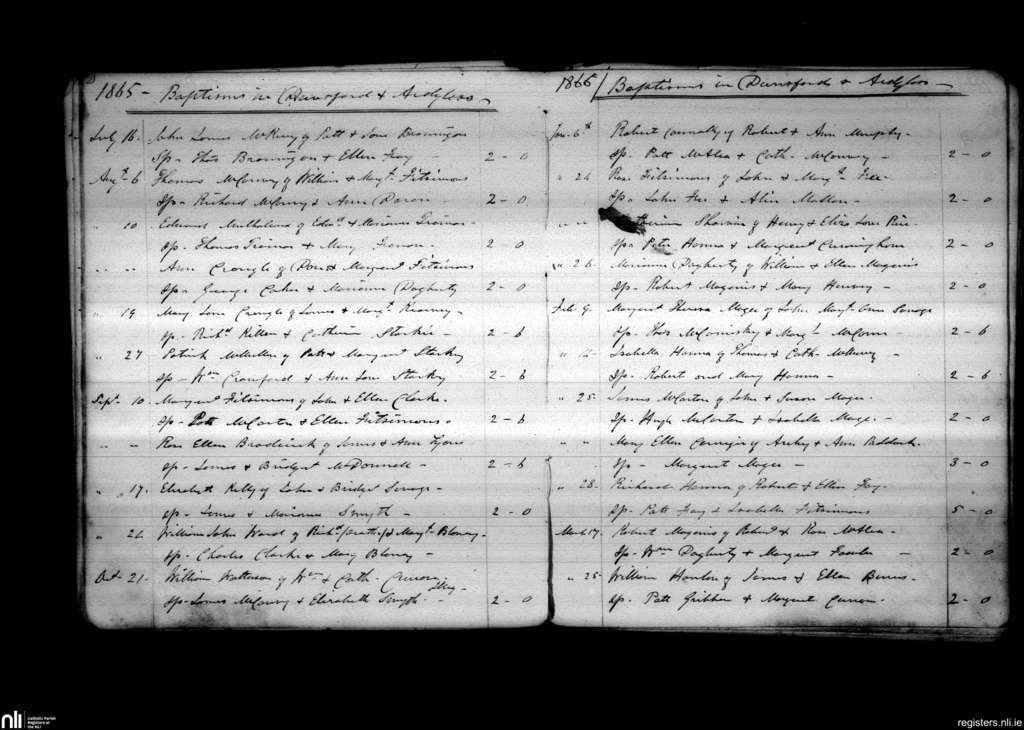 1865 - Baptisms in Dunsford & Ardglass
July 16. John James McKeny of Patt & Jane Brannigan
Sp - Thos Brannigan & Ellen Fay - 2 - 0
Augt 6 Thomas McConvey of William & Margt Fitsimons
Sp - Richard McConvey & Ann 2 - 0
" 10 Edward Mulholland of Edwd & Marianne
Sp. Thomas & Mary 2 - 0
" " Ann Crangle of & Margaret Fitsimons
Sp - George & Marianne Dogherty 2 - 0
" 19 Mary Jane Crangle of James & Margt Kearney -
Sp. Richd Killen & Catherine Starkie - 2 - 6
" 27 Patrick McMullen of Patt & Margaret Starkey
Sp - Wm Crawford & Ann Jane Starkey 2 - 6
Sept. 10. Margaret Fitsimons of John & Ellen Clarke.
Sp - Patt McCarten & Ellen Fitsimons. 2 - 6
" " Rose Ellen Broderick of James & Ann Lyons
Sp - James & Bridget McDonnell - 2 - 6
" 17. Elizabeth Kelly of John & Bridget Savage -
Sp - James & Marianne Smyth - 2 - 0
" 26 William John Ward of Richd & Margt Bloney -
Sp. Charles Clarke & Mary Bloney -
Oct - 21 - William Watterson of Wm & Cath. Curran
Sp - James McConvey & Elizabeth Smyth - 2 - 0
1866 Baptisms in Dunsford & Ardglass
Jan. 6th Robert Connolly of Robert & Ann Murphy -
Sp. Patt McAlea & Cath. McConvey - 2 - 0
" 24 Rose Fitsimons of John & Margt Fee -
Sp - John Fee & Alice 2 - 0
" " Catherine of Henry & Eliza Jane
Sp - Peter Hanna & Margaret Cunningham 2 - 0
" 26 - Marianne Dogherty of William & Ellen Magenis
Sp - Robert Magenis & Mary Henvey - 2 - 0
Feb. 9. Margaret Theresa Magee of John Margt Ann Savage
Sp. Thos McComisky & Margt 2 - 6
" 12 - Isabella Hanna of Thomas & Cath.
Sp - Robert and Mary Hanna - 2 - 6
" 25 - James McCarten of John & Susan Magee.
Sp. Hugh McCarten & Isabella Magee - 2 - 0
" " Mary Ellen of & Ann
Sp - Margaret Magee - 3 - 0
" 28. Richard Hanna of Robert & Ellen Fay.
Sp. Patt Fay & Isabella Fitsimons 5 - 0
March 17. Robert Magenis of Robert & Rose McAlea -
Sp - Wm Dogherty & Margaret - 2 - 0
" 25 - William of James & Ellen Burns -
Sp. Patt Gribben & Margaret Curran. 2 - 0
nli Catholic Parish Registers at the NLI
registers.nli.ie